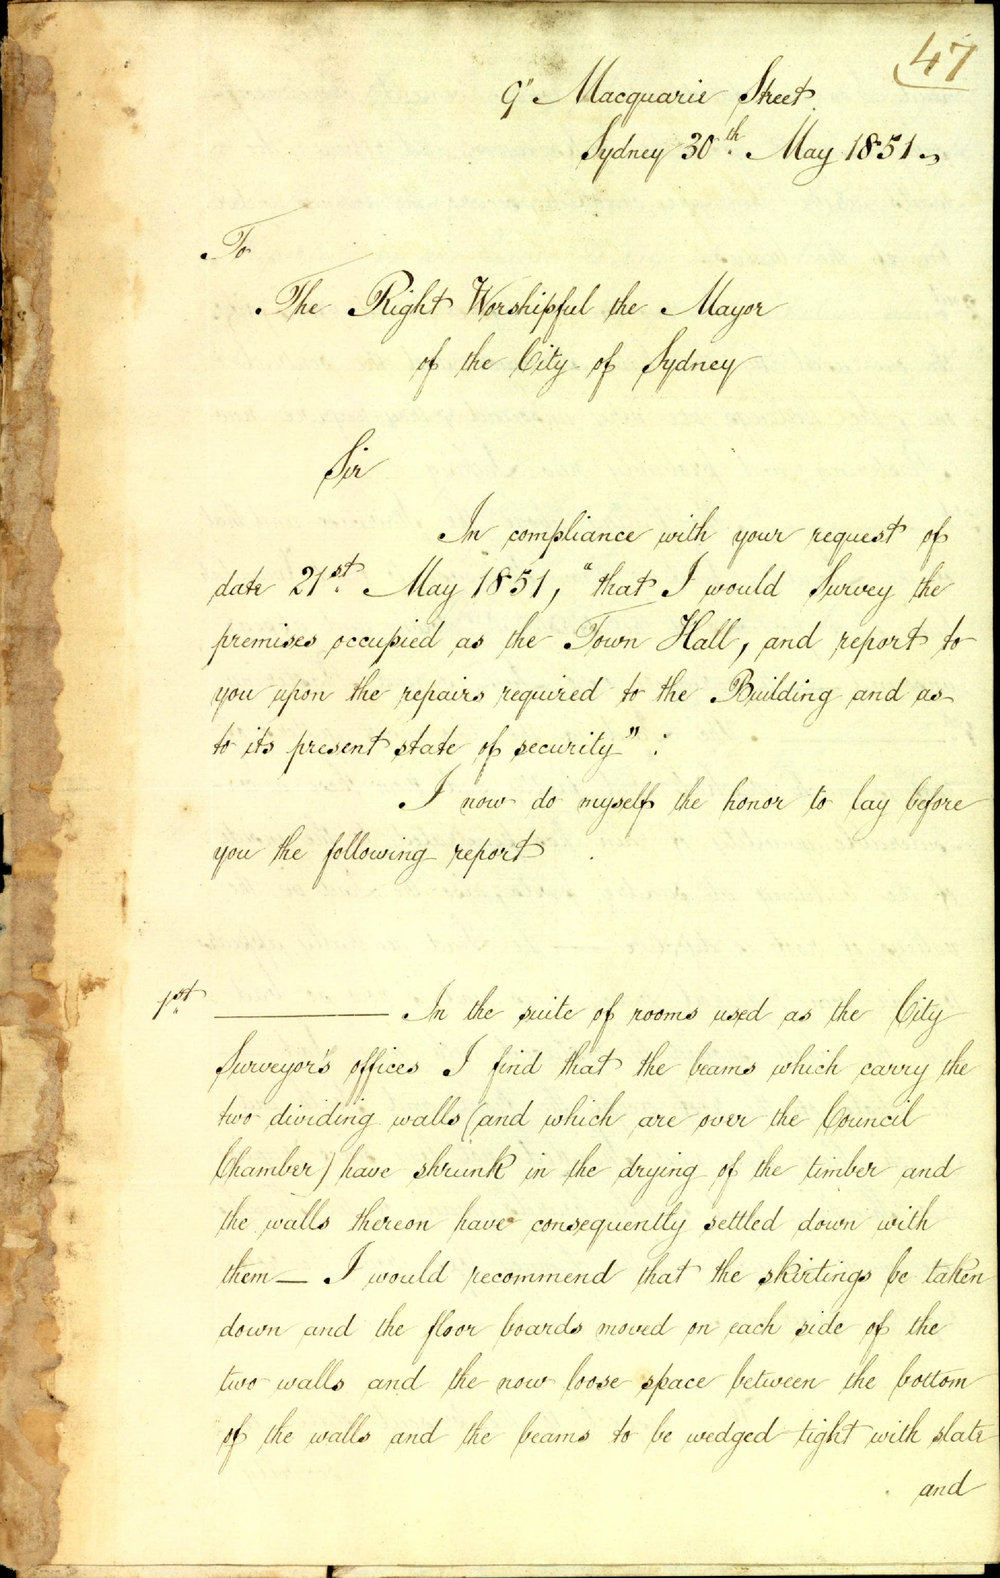 47
9" Macquarie Street
Sydney 30th May 1851
To
The Right Worshipful the Mayor
of the City of Sydney
Sir
In compliance with your request of
date 21st May 1851, "that I would Survey the
premises occupied as the Town Hall, and report to
you upon the repairs required to the Building and as
to its present state of security" :
I now do myself the honor to lay before
you the following report
1st ——— In the suite of rooms used as the City
Surveyor's offices I find that the beams which carry the
two dividing walls (and which are over the Council
Chamber) have shrunk in the drying of the timber and
the walls thereon have consequently settled down with
them — I would recommend that the skirtings be taken
down and the floor boards moved on each side of the
two walls and the now loose space between the bottom
of the walls and the beams to be wedged tight with slate
and